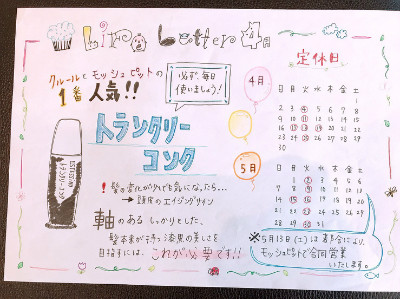 Letter 4月
クルールとモッシュピットの
1番人気!!
必ず、毎日
使いましょう!
トランクリー
コンク
! 髪の変化が少しでも気になったら…
→ 頭皮のエイジングサイン
軸のある しっかりとした、
髪本来が持つ漆黒の美しさを
目指すには、これが必要です!!
定休日
4月
日 月 火 水 木 金 土
1
2 3 4 5 6 7 8
9 10 11 12 13 14 15
16 17 18 19 20 21 22
23 24 25 26 27 28 29
30
5月
日 月 火 水 木 金 土
1 2 3 4 5 6
7 8 9 10 11 12 13
14 15 16 17 18 19 20
21 22 23 24 25 26 27
28 29 30 31
※5月13日(土)は都合により、
モッシュピットで合同営業
いたします。